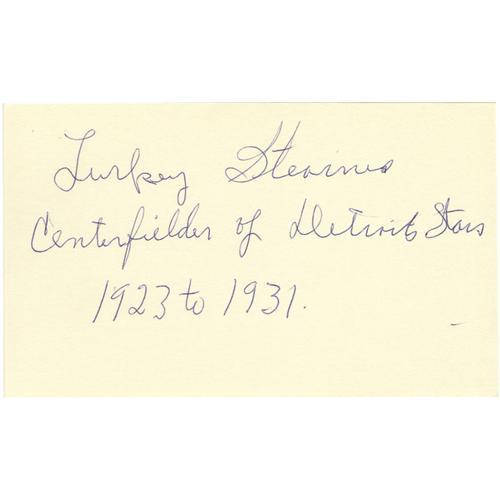 Turkey Stearnes
Centerfielder of Detroit Stars
1923 to 1931.